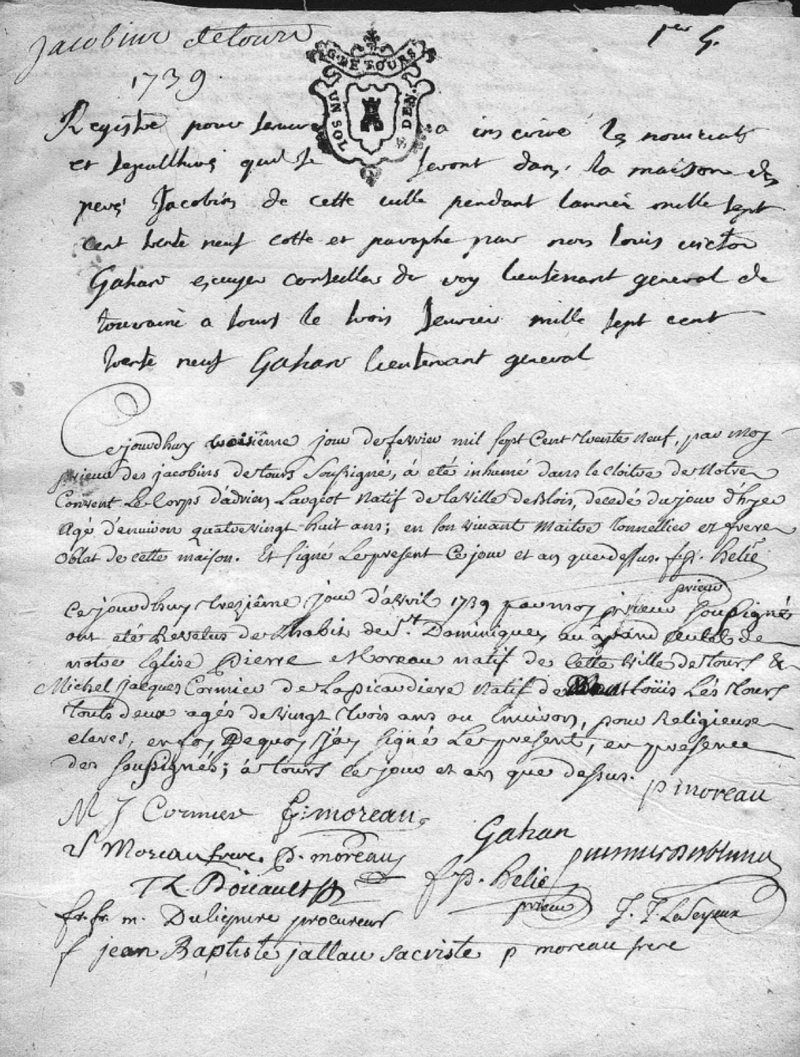 Jacobins de tours
1739.
per G.
G. DE TOURS
UN SOL
DEN.
Registre pour servir a inscrire les noviciats
et sepultures qui se feront dans la maison des
peres Jacobins de cette ville pendant lannée mille sept
cent trente neuf cotte et paraphe par nous louis victor
Gahan escuyer conseiller du roy lieutenant general de
touraine a tours le trois feuvrier mille sept cent
trente neuf Gahan lieutenant general
Cejourdhuy troisiême jour de fevrier mil sept Cent trente neuf, par moy
prieur des jacobins de tours soussigné, à été inhumé dans le cloitre de Notre
Convent Le Corps d'adrien Laugiot Natif de la ville de Blois, decedé du jour d'hyer
Agé d'environ quatre vingt huit ans; en son vivant Maitre tonnellier et frere
Oblat de cette maison. Et signé Le present Ce jour et an que dessus. f. p. helie
prieur
Ce jourdhuy treziême jour d'avril 1739 par moy prieur soussigné
ont eté Revetus de Lhabit de St. Dominique au grand autel de
notre Eglise Pierre Moreau natif de Cette Ville de tours &
Michel jacques Cormier de Lapicaudiere Natif de Montloüis Lés tours
touts deux agés de vingt trois ans ou Environ, pour Religieux
clercs, en foy Dequoy j'ay signé Le present, en presence
des soussignés; à tours Ce jour et an que dessus.
p moreau
M J Cormier G: moreau
Gahan
Moreau frere. P. moreau
f. p. helie
prieur
fr. fr. m. Duliepvre procureur
f jean Baptiste jallau sacriste p moreau frere